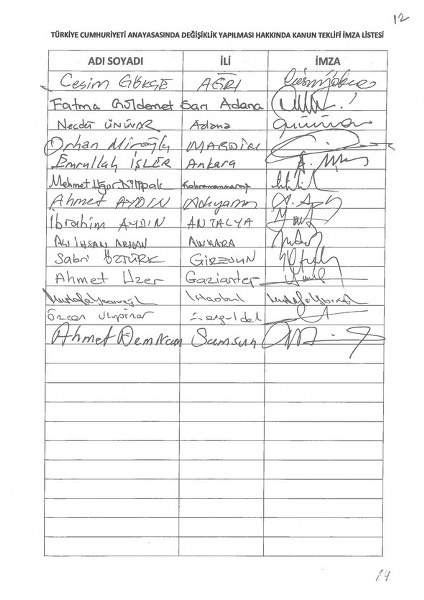 12
TÜRKİYE CUMHURİYETİ ANAYASASINDA DEĞİŞİKLİK YAPILMASI HAKKINDA KANUN TEKLİFİ İMZA LİSTESİ
ADI SOYADI İLİ İMZA
Cesim GÖKÇE AĞRI
Fatma Güldemet Sarı Adana
Necdet ÜNÜVAR Adana
Orhan Miroğlu MARDİN
Emrullah İŞLER Ankara
Mehmet Uğur Dilipak Kahramanmaraş
Ahmet AYDIN Adıyaman
İbrahim AYDIN ANTALYA
ALİ İHSAN ARSLAN ANKARA
Sabri ÖZTÜRK GİRESUN
Ahmet Uzer Gaziantep
Mustafa İstanbul
Özcan Ulupınar Zonguldak
Ahmet Demircan Samsun
14